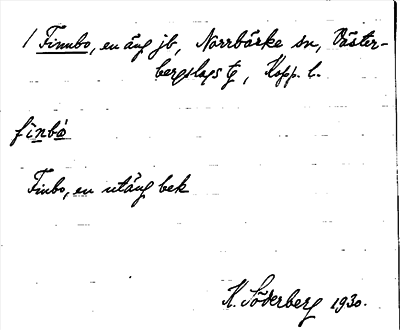 / Finnbo, en äng jb, Norrbärke sn, Väster-
bergslags tg, Kopp. l.
finbo
Finbo, en utäng bek
K. Söderberg 1930.